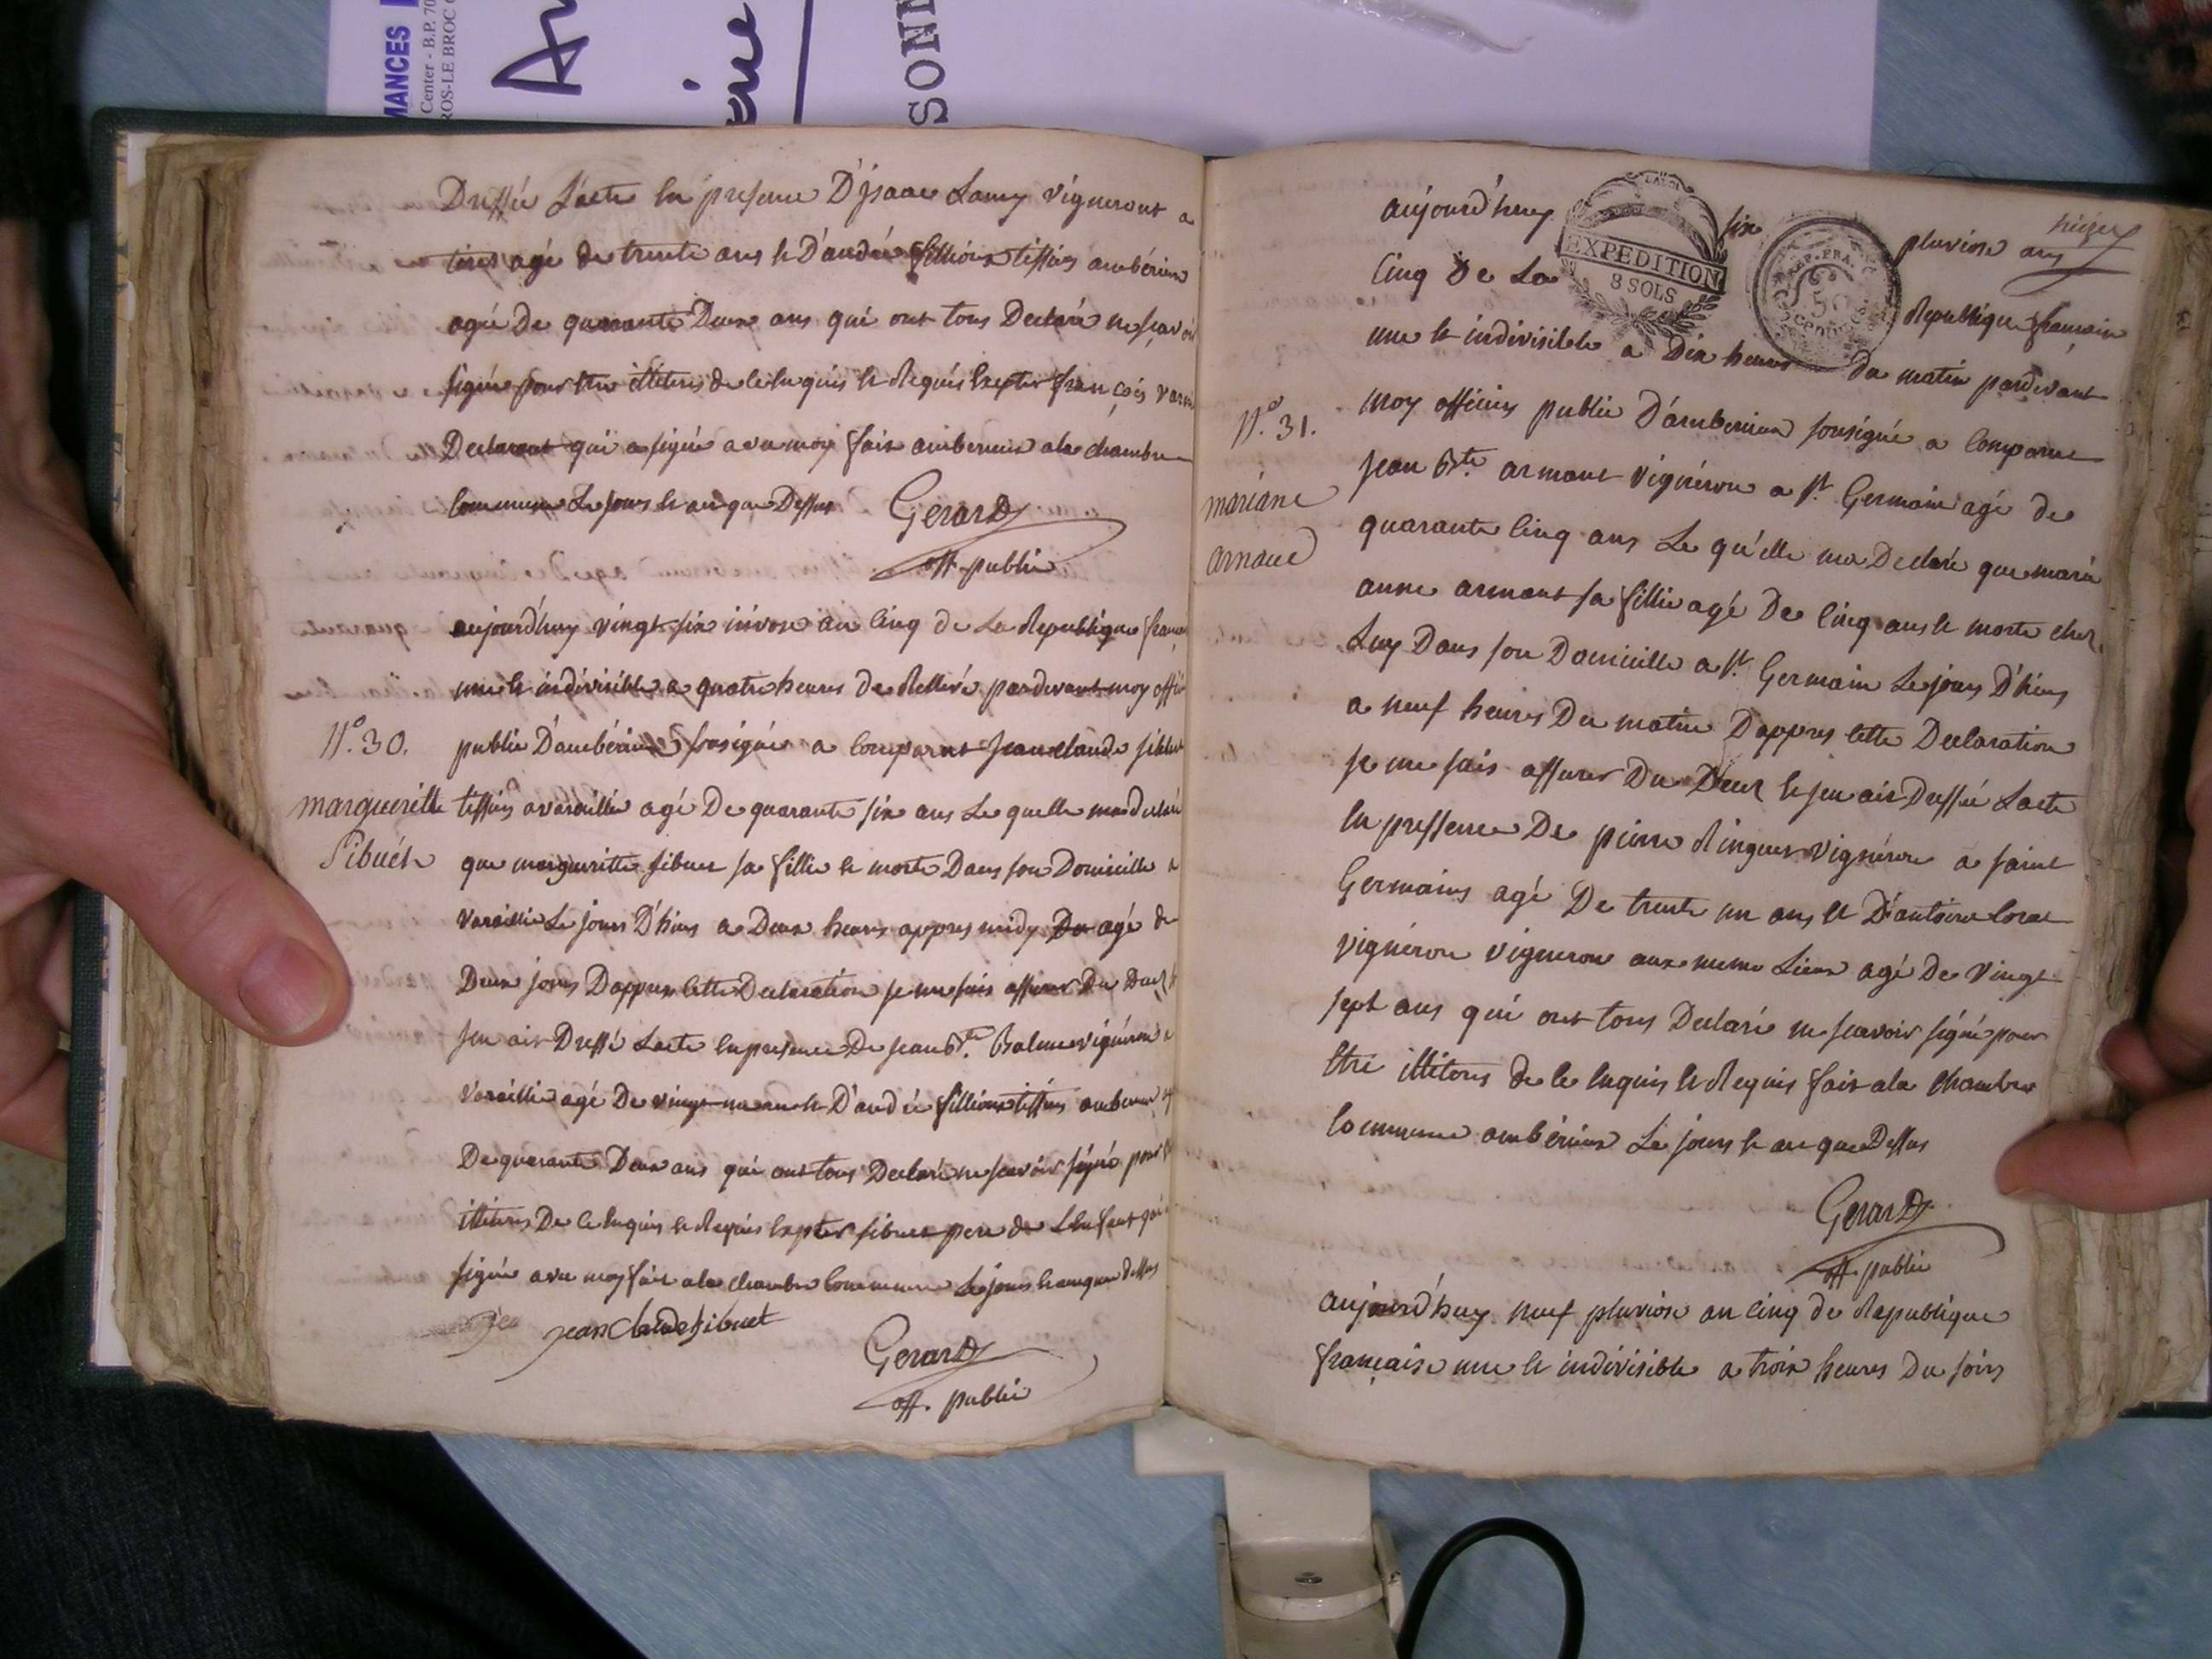 MANCES
Center - B.P. 70
ROS-LE BROC
SONN
Dressée L'acte En presence D'jsaac Lamy vigneront a
tiret agé de trente ans & D'andrée fillioux tissiers ambérieux
agée De quarante Deux ans qui ont tous Declaré ne scavoir
signée pour Etre illiterés de ce Enquis & Requis Excepter françois
Declarant qui a signée avec moy fait amberieux a la chambre
commune Le jours & an que Dessus
Gerard
off. public
aujourd'huy vingt six nivose an cinq de La Republique
une & indivisible a quatre heures de Rellevé pardevant moy
N.º 30.
public D'ambérieux sousignée a comparut jean claude sibuet
margueritte
Sibuét
tissiers a vareille agé De quarante six ans Le quelle ma declaré
que marguerite sibuet sa fillie & morte Dans son Domicille a
Vareillie Le jours D'hiers a Deux heures appres midy De agé de
Deux jours D'appres cette Declaration je me suis assurer Du Decez
j'en ais Dressé L'acte En presence De jean B.te Balme vignéron a
Vareillie agé De vingt & D'andrée fillioux tissiers amberieux
De quarante Deux ans qui ont tous Declaré ne scavoir signé pour
illiterés De ce Enquis & Requis Expter sibuet pere de L'Enfent qui
signée avec moy fait a la chambre Commune Le jours & an que dessus
jean Claude sibuet
Gerard
off. public
aujourd'huy six pluviose an
EXPEDITION
8 SOLS
REP. FRA.
50
CENTIMES
cinq de La Republique française
une & indivisible a Dix heures Du matin pardevant
N.º 31.
moy officiers public D'amberieux sousigné a comparut
mariane
arnaud
jean B.te armant vignéron a S.t Germain agé de
quarante cinq ans Le qu'elle ma Declaré que marie
anne armant sa fillie agé De cinq ans & morte chez
Luy Dans son Domicille a S.t Germain Le jours D'hiers
a neuf heures Du matin D'appres cette Declaration
je me suis assurer Du Decez & j'en ais Dressée L'acte
En pressence De pierre Ringuet vignéron a saint
Germains agé De trente un ans & D'antoine
vignéron vigneron aux meme Lieux agé De vingt
sept ans qui ont tous Declaré ne scavoir signé pour
Etre illiterés de ce Enquis & Requis fait a la chambre
commune ambérieux Le jours & an que Dessus
Gerard
off. public
aujourd'huy neuf pluviose an cinq de Republique
française une & indivisible a troix heures Du soirs